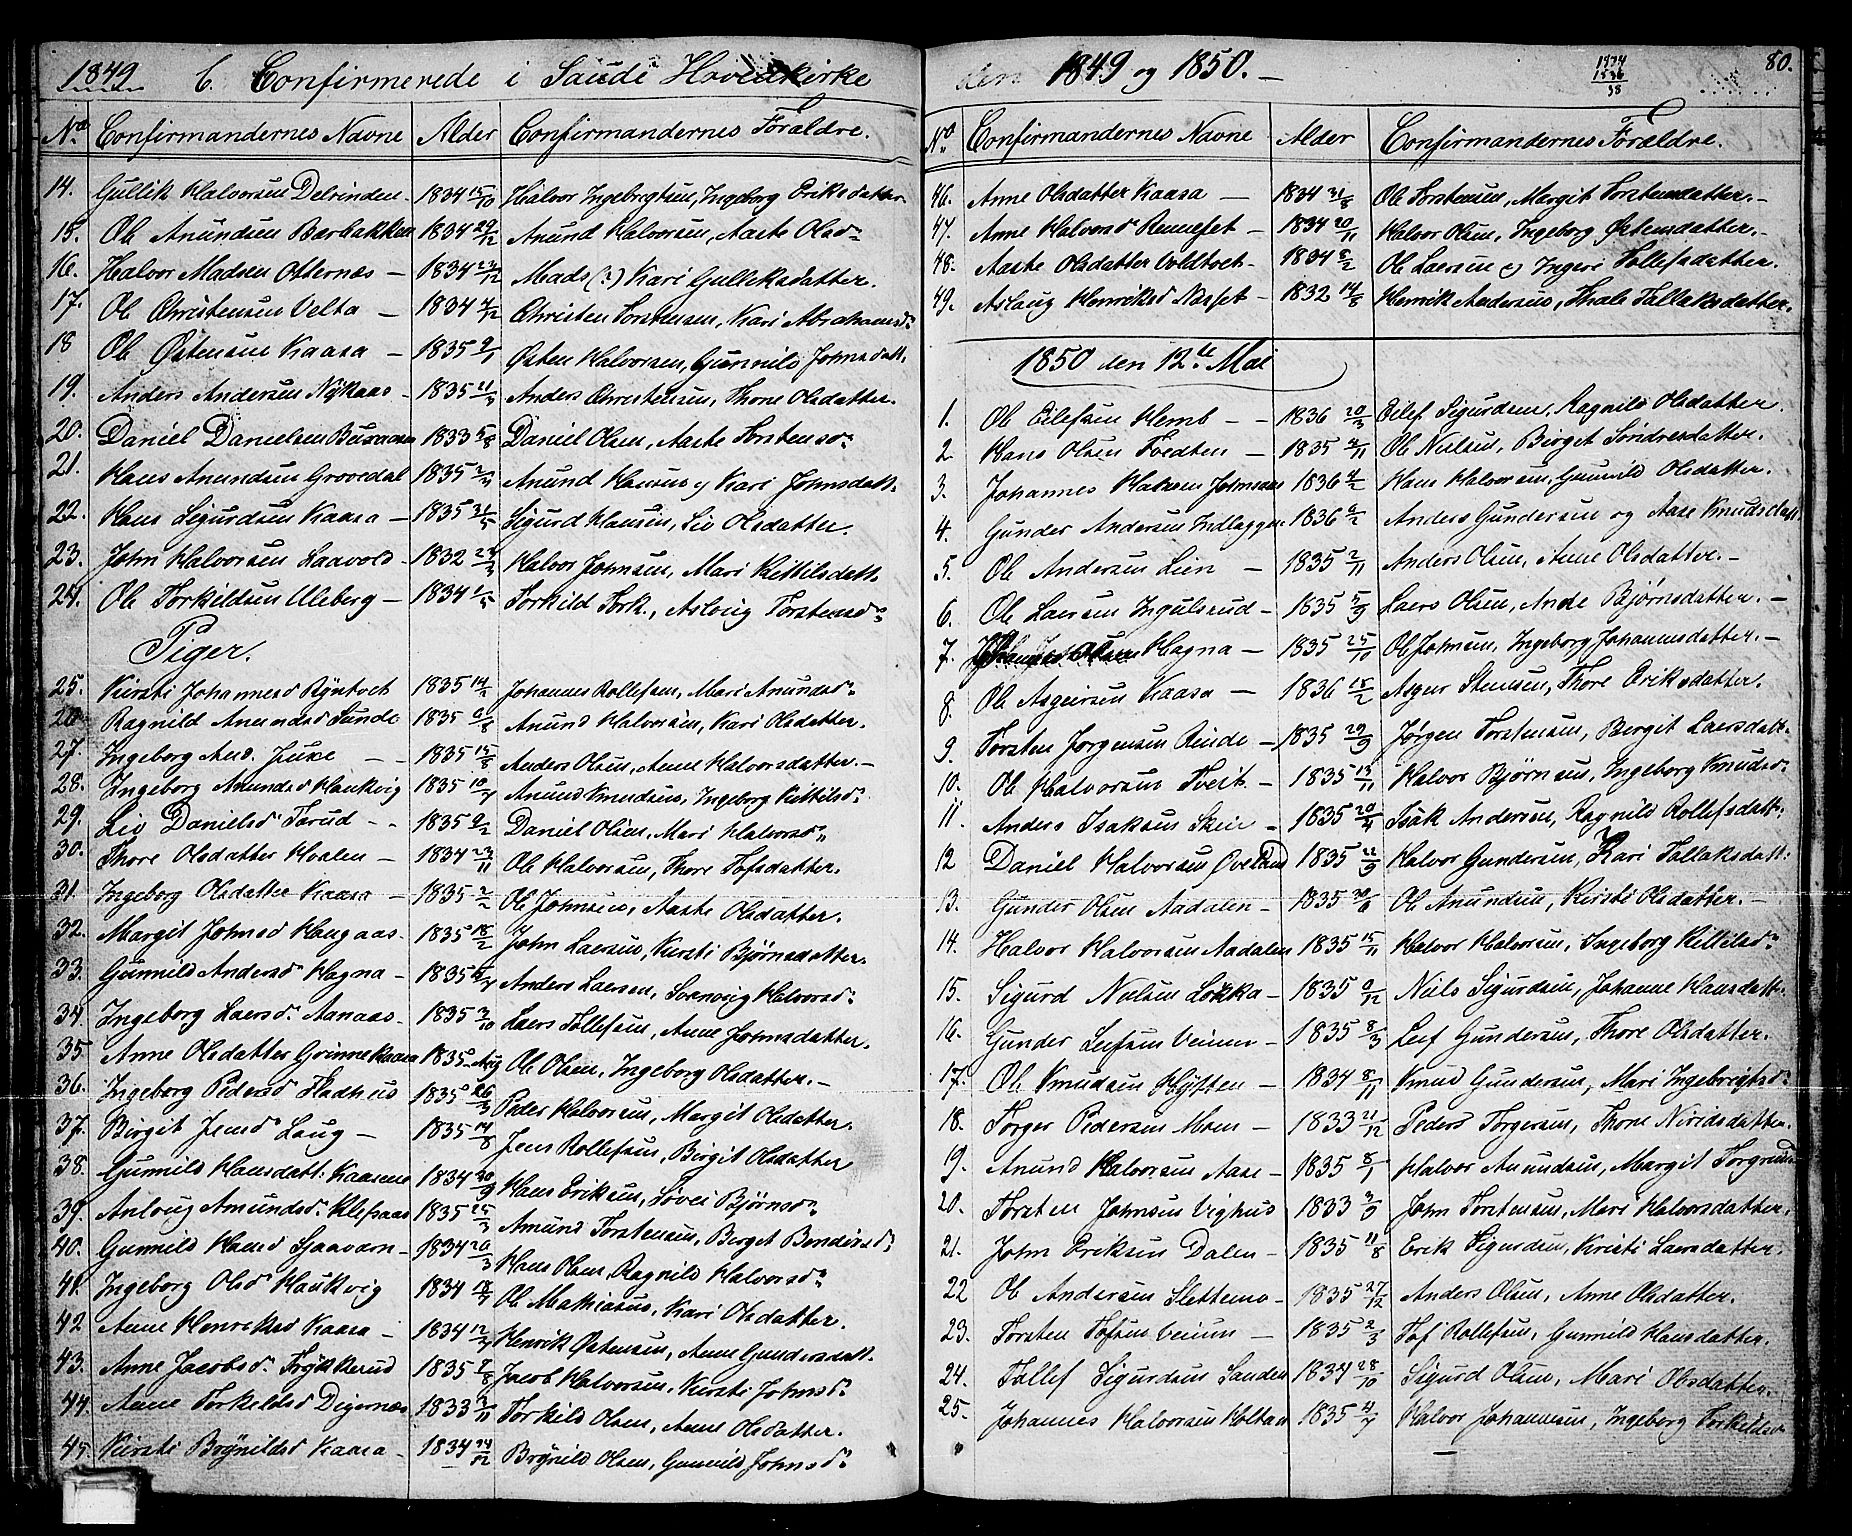 1849. C. Confirmerede i Saude Hovedkirke
No Confirmandernes Navne Alder Confirmandernes Forældre.
14. Gullik Halvorsen Delrinden 1834 15/10 Halvor Ingebregtsen, Ingeborg Eriksdatter
15. Ole Anundsen Barbakken 1834 29/12 Anund Halvorsen, Aaste Olsd.
16. Halvor Madsen Oternæs – 1834 23/12 Mads (?) Kari Gulleksdatter.
17. Ole Christensen Velta – 1834 4/12 Christen Torstensen, Kari Abrahamsd.
18 Ole Østensen Kaasa – 1835 9/1 Østen Halvorsen, Gunnild Johnsdatt.
19. Anders Andersen Nykaas – 1835 21/3 Anders Christensen, Thone Olsdatter.
20. Daniel Danielsen 1833 5/8 Daniel Olsen, Aaste Torstensd.
21. Hans Anundsen Grovedal 1835 Anund Hansen og Kari Johnsdatt.
22. Hans Sigurdsen Kaasa – 1835 31/5 Sigurd Hansen, Liv Olsdatter.
23. John Halvorsen Laavold – 1832 23/3 Halvor Johnsen, Mari Kittilsdatt.
24. Ole Torkildsen Uleberg – 1834 1/5 Torkild Tork., Aslaug Torstensd.
Piger.
25. Kirsti Johannesd Ryntvet 1835 14/1 Johannes Rollefsen, Mari Anundsd.
26 Ragnild Anundsd Sunde 1835 6/8 Anund Halvorsen, Kari Olsdatter.
27. Ingeborg And. Juve – – 1835 15/8 Anders Olsen, Anne Halvorsdatter. –
28. Ingeborg Anundsd Haukvig 1835 10/7 Anund Knudsen, Ingeborg Kittilsd.
29. Liv Danielsd Tarud – – 1835 9/2 Daniel Olsen, Mari Halvorsd.
30. Thore Olsdatter Hvalen – 1834 23/11 Ole Halvorsen, Thore Tofsdatter.
31. Ingeborg Olsdatter Kaasa – 1835 2/2 Ole Johnsen, Aaste Olsdatter.
32. Margit Johnsd Haugaas – 1835 18/2 John Laersen, Kirsti Bjørnsdatter.
33. Gunnild Andersd Hagna – 1835 Anders Laersen, Halvorsd.
34. Ingeborg Laersd. Aanaas – 1835 3/10 Laers Tollefsen, Anne Johnsdatter.
35. Anne Olsdatter Grinnekaasa 1835 Aug Ole Olsen, Ingeborg Olsdatter. –
36. Ingeborg Pedersd Fladhus 1835 26/3 Peder Halvorsen, Margit Olsdatter.
37. Birgit Jensd Laug – 1835 14/8 Jens Rollefsen, Birgit Olsdatter
38. Gunnild Hansdatt. Kaasene 1834 20/9 Hans Eriksen, Løvei Bjørnsd.
39. Anlaug Amundsd. Klefsaas 1835 25/3 Amund Torstensen, Birgit
40. Gunnild Hansd Sjaavarn – 1834 20/3 Hans Olsen, Ragnild Halvorsd.
41. Ingeborg Olsd Haukvig 1834 18/7 Ole Mathiasen, Kari Olsdatter.
42 Anne Henriksd Kaasa – 1834 Henrik Østensen, Anne Gundersdatt.
43. Anne Jacobsd. Trykkerud 1835 9/8 Jacob Halvorsen, Kirsti Johnsd.
44. Anne Torkildsd Digernæs 1833 3/11 Torkild Olsen, Anne Olsdatter.
45. Kirsti Brynildsd Kaasa – 1834 24/12 Brynild Olsen, Gunnild Johnsd.
den 1849 og 1850. –
1834
1836
38
80.
No Confirmandernes Navne Alder Confirmandernes Forældre.
46. Anne Olsdatter Kaasa – 1834 31/8 Ole Torstensen, Margit Torstensdatter. –
47. Anne Halvorsd Renneset – 1834 20/11 Halvor Olsen, Ingeborg Østensdatter. –
48. Aaste Olsdatter Voldtvet – 1834 8/2 Ole Laersen og Ingeri Tollefsdatter.
49. Aslaug Henriksd Næset – 1832 14/8 Henrik Andersen, Thale Tallaksdatter.
1850 den 12te Mai
1. Ole Eilefsen Hemb – – 1836 20/3 Eilef Sigurdsen, Ragnild Olsdatter.
2 Hans Olsen Tvedten – 1835 4/11 Ole Nielsen, Birgit Søndresdatter.
3. Johannes Hansen Johnsaas 1836 4/2 Hans Halvorsen, Gunnild Olsdatter.
4. Gunder Andersen Indlaggen 1836 6/2 Anders Gundersen og Aase Knudsdatt.
5. Ole Andersen Lien – 1835 2/11 Anders Olsen, Anne Olsdatter. –
6. Ole Laersen Ingulsrud – 1835 5/9 Laers Olsen, Anne Bjørnsdatter. –
7. Hagna – 1835 25/10 Ole Johnsen, Ingeborg Johannesdatter. –
8. Ole Asgeirsen Kaasa – 1836 15/2 Asgeir Stensen, Thore Eriksdatter.
9. Torsten Jørgensen Reinde – 1835 29/9 Jørgen Torstensen, Bergit Laersdatt.
10. Ole Halvorsen Tveit – 1835 13/11 Halvor Bjørnsen, Ingeborg Knudsd.
11. Anders Isaksen Skeie – 1835 20/4 Isak Andersen, Ragnild Rollefsdatt.
12 Daniel Halvorsen Qveland 1835 22/9 Halvor Gundersen, Kari Tallaksdatt.
13. Gunder Olsen Aadalen – 1835 Ole Anundsen, Kirsti Olsdatter. –
14. Halvor Halvorsen Aadalen 1835 15/11 Halvor Halvorsen, Ingeborg Kittilsd.
15. Sigurd Nielsen Løkka – 1835 9/12 Niels Sigurdsen, Johanne Hansdatt.
16. Gunder Leifsen Veium – 1835 8/3 Leif Gundersen, Thore Olsdatter.
17. Ole Knudsen Hyften – 1834 8/11 Knud Gundersen, Mari Ingebrigtsd.
18. Torger Pedersen Moen – 1833 21/12 Peder Torgersen, Thone Niridsdatter.
19. Anund Halvorsen Aase – 1835 8/7 Halvor Anundsen, Margit
20. Torsten Johnsen Vighus 1833 3/9 John Torstensen, Mari Halvorsdatter.
21. John Eriksen Dalen – 1835 11/8 Erik Sigurdsen, Kristi Laersdatter.
22 Ole Andersen Slettemo – 1835 27/12 Anders Olsen, Anne Olsdatter.
23. Torsten Tofsen Veium – 1835 2/3 Tof Rollefsen, Gunnild Hansdatter.
24. Tollef Sigurdsen Sanden 1834 28/10 Sigurd Olsen, Mari Olsdatter.
25. Johannes Halvorsen Holtan 1835 4/7 Halvor Johannesen, Ingeborg Torkildsd.